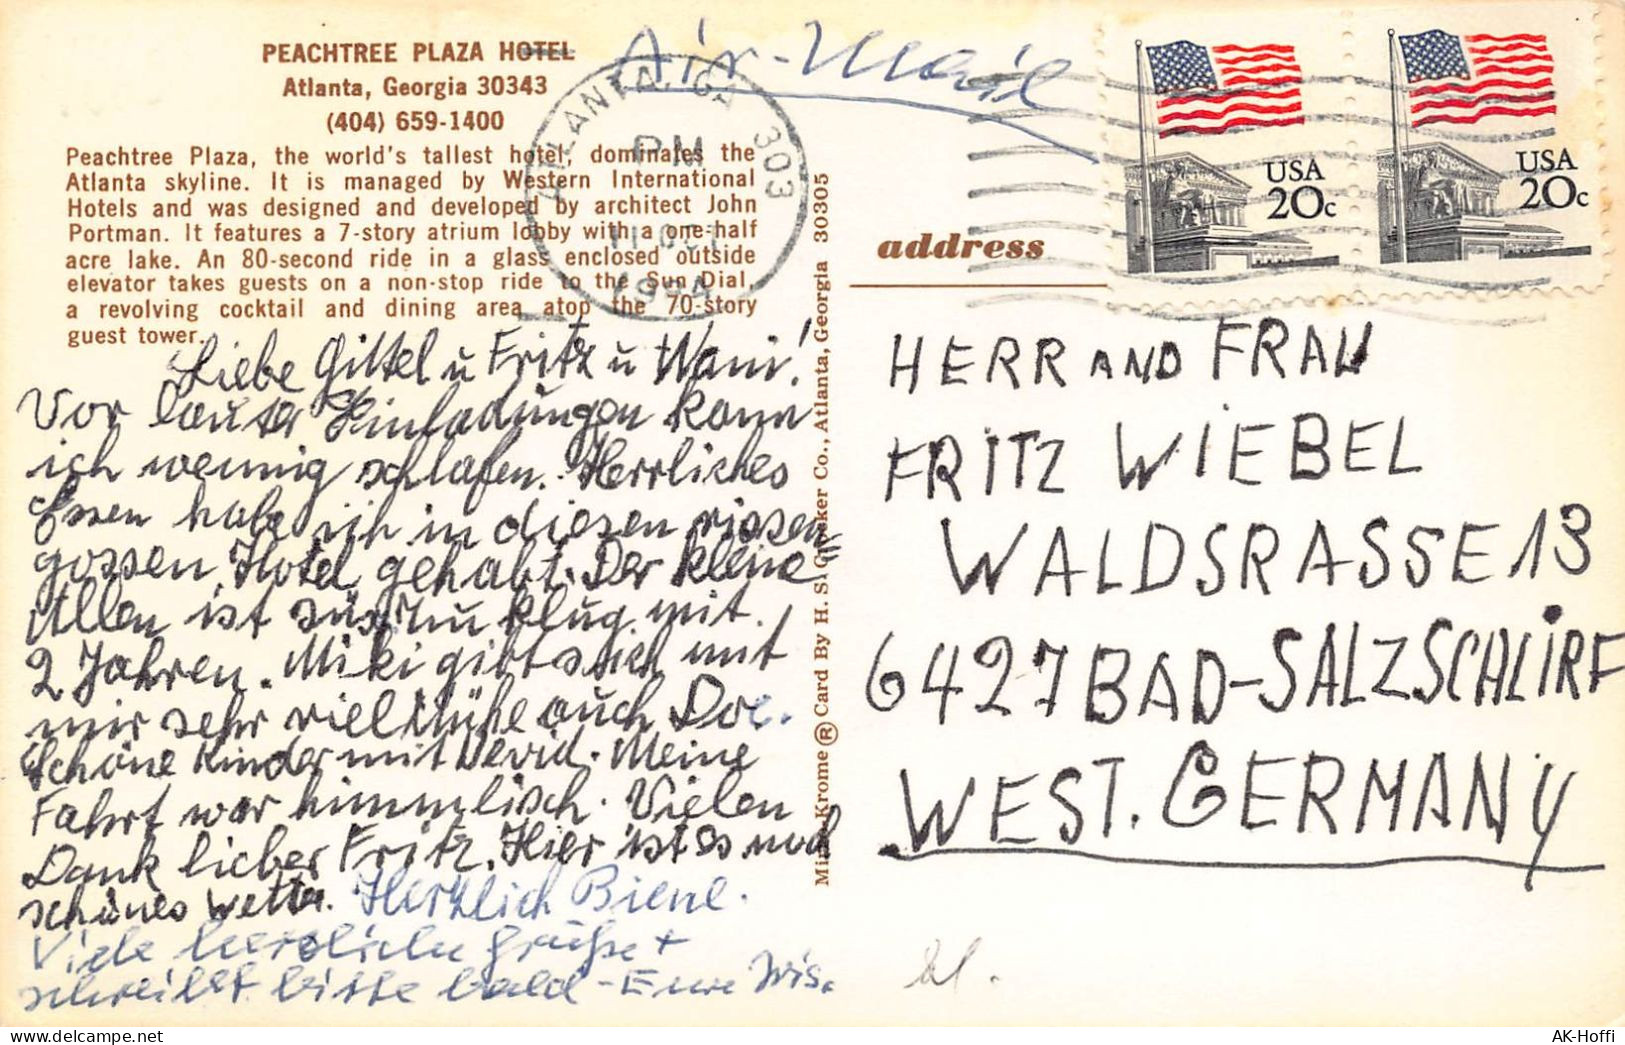 PEACHTREE PLAZA HOTEL
Atlanta, Georgia 30343
(404) 659-1400
Peachtree Plaza, the world's tallest hotel, dominates the
Atlanta skyline. It is managed by Western International
Hotels and was designed and developed by architect John
Portman. It features a 7-story atrium lobby with a one-half
acre lake. An 80-second ride in a glass enclosed outside
elevator takes guests on a non-stop ride to the Sun Dial,
a revolving cocktail and dining area atop the 70-story
guest tower.
Air-Mail
ATLANTA, GA 303
PM
USA
20c
USA
20c
address
Liebe Gittel u Fritz u Wani!
Vor lauter Einladungen kann
ich wennig schlafen. Herrliches
Essen habe ich in diesen riesen
gossen Hotel gehabt. Der kleine
Allen ist süss klug mit
2 Jahren. Miki gibt sich mit
mir sehr viel Mühe auch Doc.
Schöne Kinder mit Devid. Meine
Fahrt war himmlisch. Vielen
Dank lieber Fritz. Hier ist es noch
schönes Wetter. Herzlich Biene.
Viele herzliche Grüße +
schreibt bitte bald - Eure Iris.
Mike Krome ® Card By H. S. Crocker Co., Atlanta, Georgia 30305
HERR AND FRAU
FRITZ WIEBEL
WALDSRASSE 13
6427 BAD-SALZSCHLIRF
WEST. GERMANY
AK-Hoffi